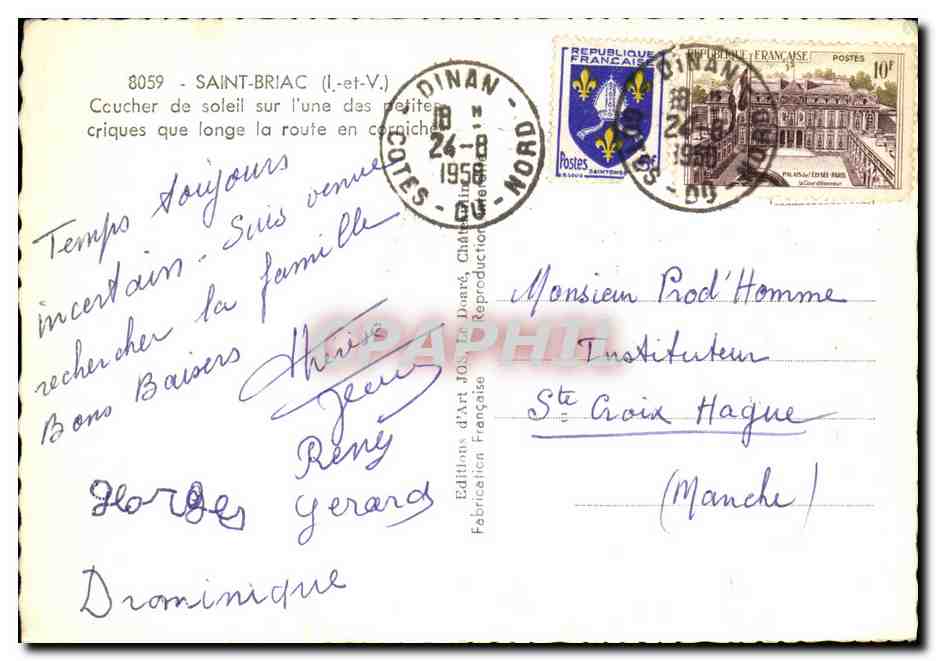 8059 - SAINT-BRIAC (I.-et-V.)
Coucher de soleil sur l'une des petites
criques que longe la route en corniche
Temps toujours
incertain - Suis venue
rechercher la famille
Bons Baisers
Thérèse
René
Gerard
Dominique
Editions d'Art JOS. Le Doaré, Châteaulin
Fabrication Française Reproduction
DINAN
18 H
24-8
1956
COTES-DU-NORD
REPUBLIQUE
FRANÇAISE
Postes
SAINTONGE
DINAN
18
24-8
1956
COTES-DU-NORD
REPUBLIQUE FRANÇAISE POSTES
10F
PALAIS DE L'ELYSÉE-PARIS
la Cour d'Honneur
Monsieur Prod'Homme
Instituteur
Ste Croix Hague
(Manche)
CPAPHIL